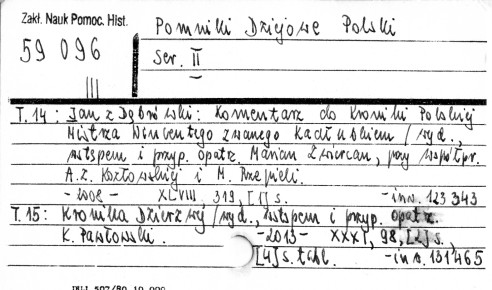 Zakł. Nauk Pomoc. Hist.
Pomniki Dziejowe Polski
59 096
Ser. II
III
T. 14: Jan z Dąbrówki: Komentarz do Kroniki Polskiej
Mistrza Wincentego zwanego Kadłubkiem / wyd.,
wstępem i przyp. opatrz. Marian Zwiercan, przy współpr.
A. Z. Kozłowskiej i M. Rzepieli.
- 2008 - XLVIII 319, [1] s. - inw. 123343
T. 15: Kronika Dzierzwy / wyd. wstępem i przyp. opatrz.
K. Pawłowski. - 2013 - XXXI, 98, [2] s.,
[4] s. tabl. - inw. 131465